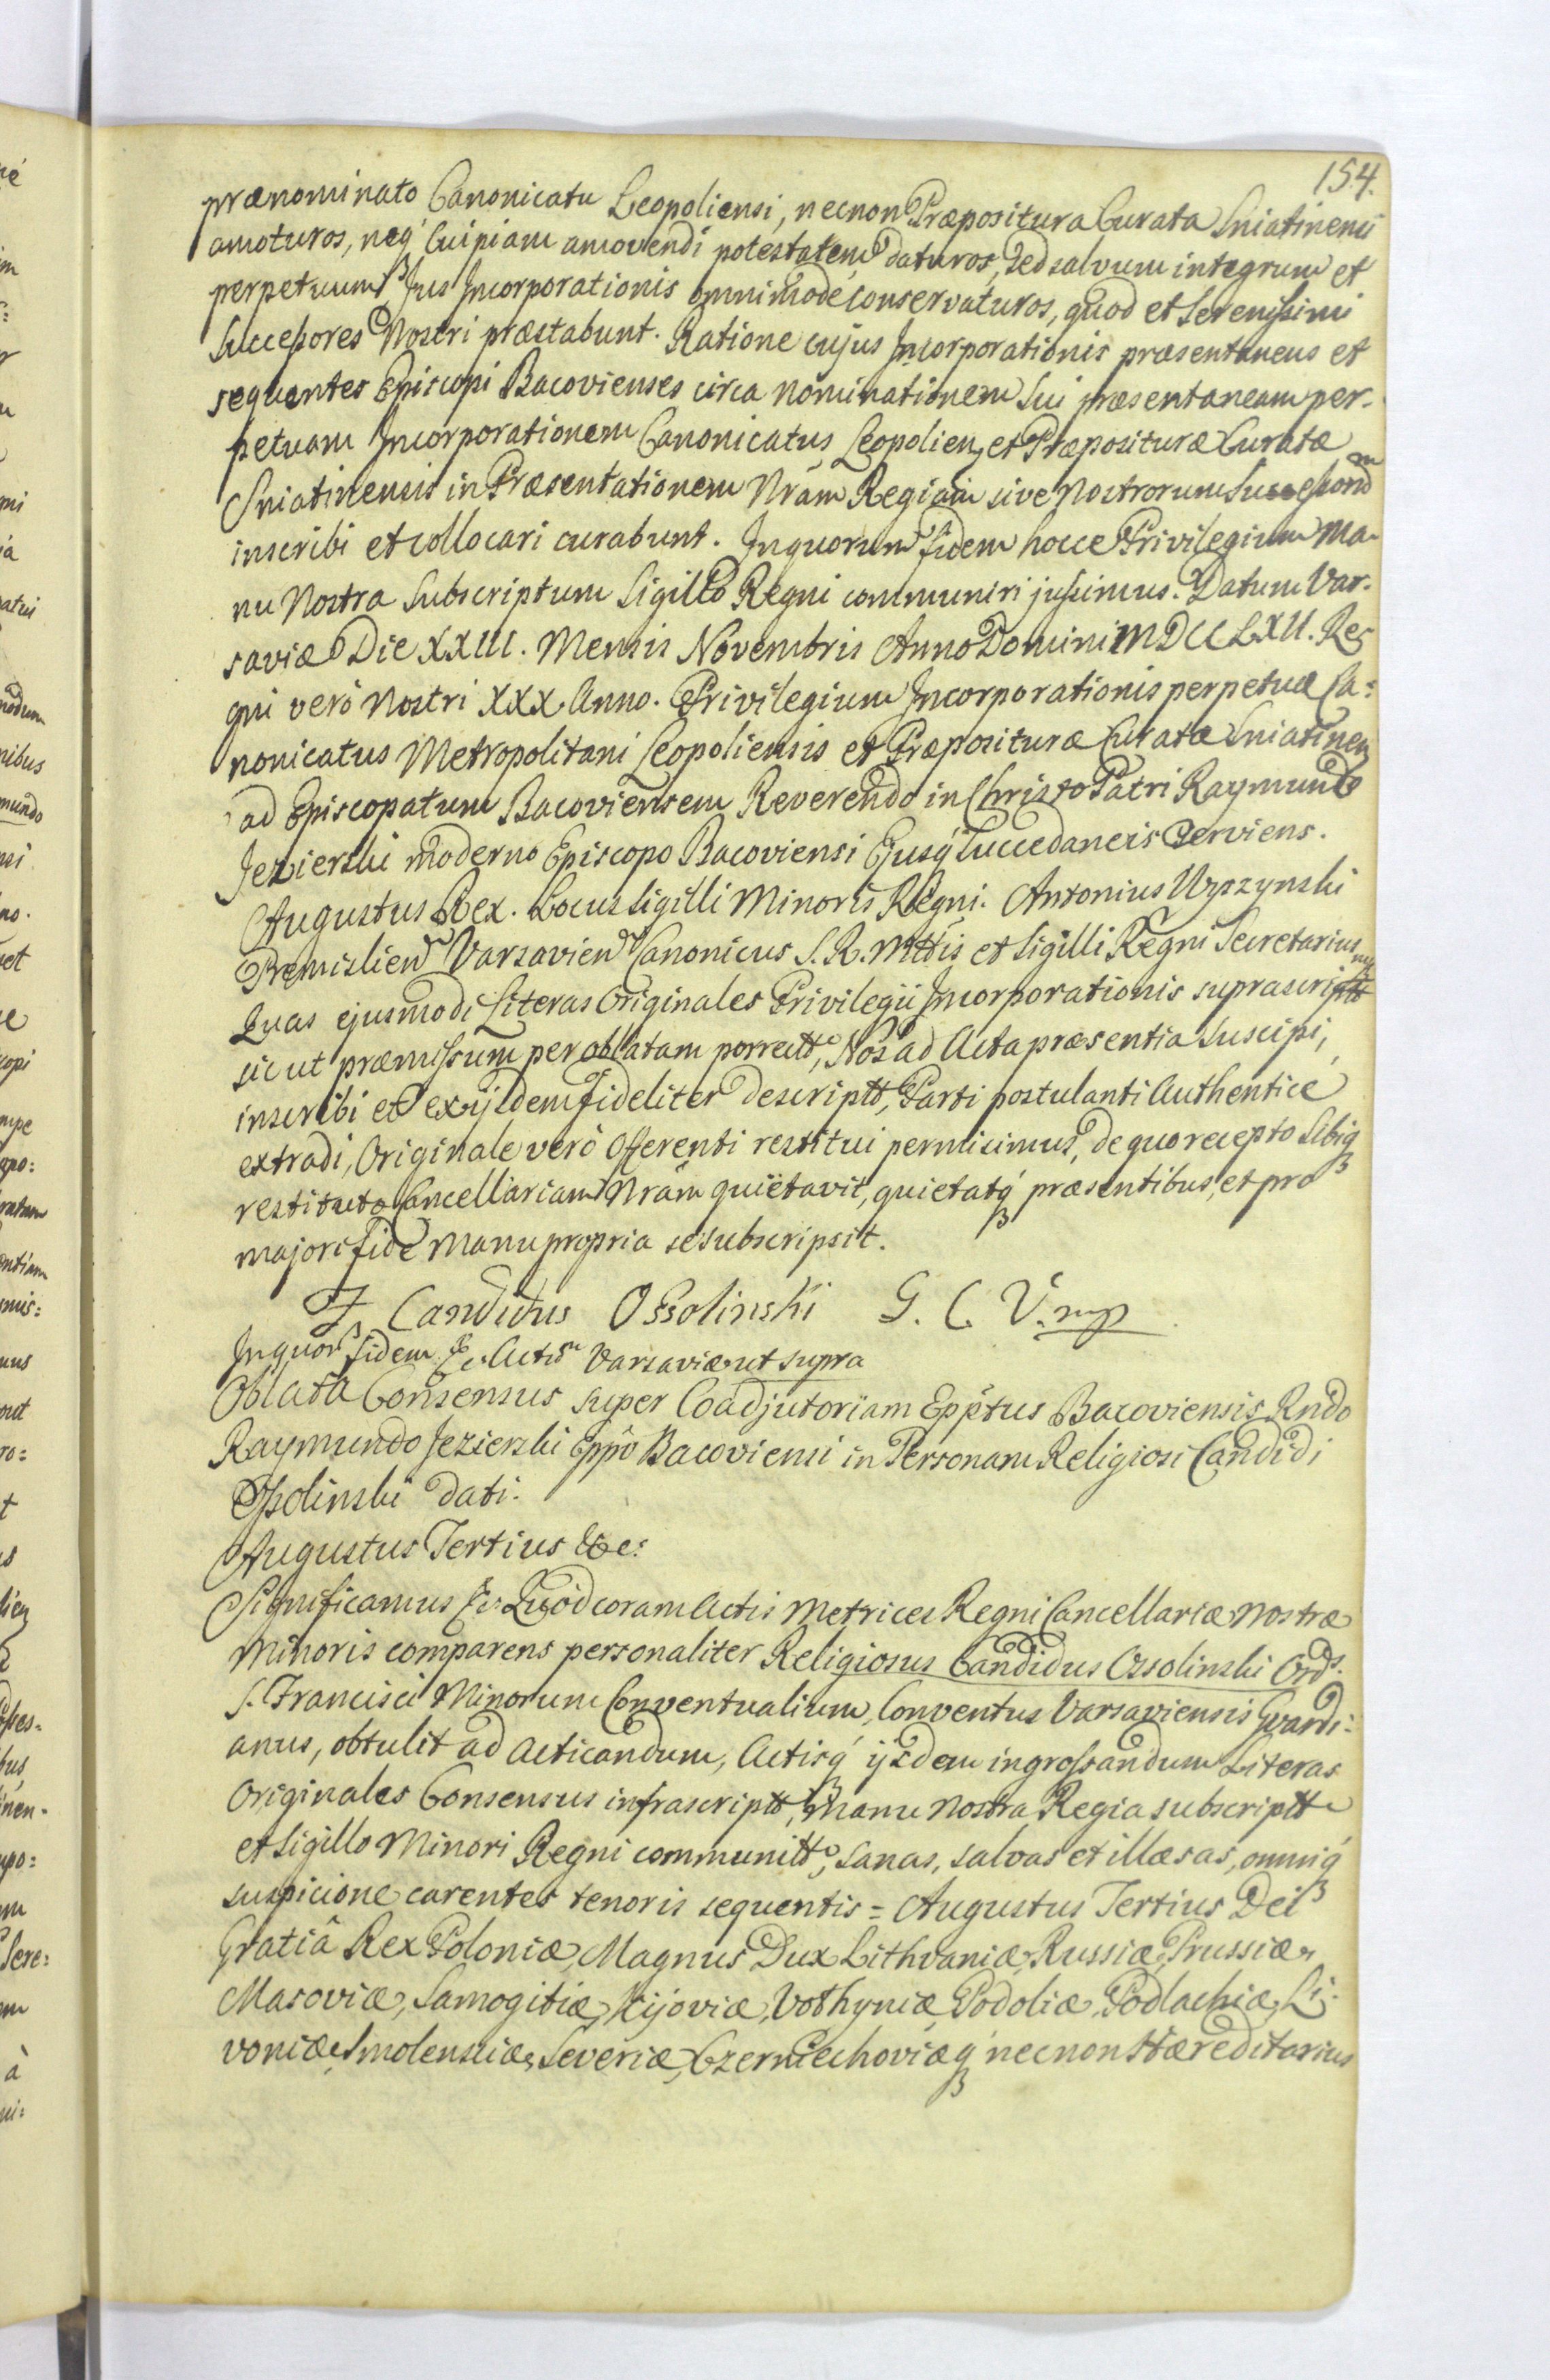 154.
prænominato Canonicatu Leopoliensi, necnon Præpositura Curata Sniatinensi
amoturos, neq́ Cuipiam amovendi potestatem daturos, Sed salvum integrum et
perpetuum Jus Incorporationis omnimode conservaturos, quod et Serenissimi
Successores Nostri præstabunt. Ratione cujus Incorporationis præsentaneus et
sequentes Episcopi Bacovienses circa Nominationem Sui præsentaneam per-
petuam Incorporationem Canonicatus Leopolien, et Præposituræ Curatæ
Sniatinensis in Præsentationem Nrãm Regiam sive Nostrorum Successorum
inscribi et collocari curabunt. In quorum fidem hocce Privilegium Ma-
nu Nostra Subscriptum Sigillo Regni communiri jussimus. Datum Var-
saviæ Die XXIII. Mensis Novembris Anno Domini MDCCLXII. Reg
gni verò Nostri XXX Anno. Privilegium Incorporationis perpetuæ Ca:
nonicatus Metropolitani Leopoliensis et Præposituræ Curatæ Sniatinen
ad Episcopatum Bacoviensem Reverendo in Christo Patri Raymundo
Jezierski moderno Episcopo Bacoviensi Ejusq́ Succedaneis Serviens.
Augustus Rex. Locus Sigilli Minoris Regni. Antonius
Premislien Varsavien Canonicus S. R. Mttis et Sigilli Regni Secretarius mp
Quas ejusmodi Literas Originales Privilegii Incorporationis suprascriptt
sicut præmissum per oblatam porrectt, Nos ad Acta præsentia Suscipi,
inscribi et ex ijsdem fideliter descriptt, Parti postulanti Authentice
extradi, Originale verò Offerenti restitui permisimus, de quo recepto Sibiq
restituto Cancellariam Nrãm quietavit, quietatq́ præsentibus, et pro
majori fide Manu propria se subscripsit.
F. Candidus Ossolinski G. C. V. mp
In quor fidem Ec. Actum Varsaviæ ut supra
Oblata Consensus super Coadjutoriam Epptus Bacoviensis Rndo
Raymundo Jezierski Eppo Bacoviensi in Personam Religiosi Candidi
Ossolinski dati.
Augustus Tertius &c:
Significamus Ec. Quod coram Actis Metrices Regni Cancellariæ Nostræ
Minoris comparens personaliter Religiosus Candidus Ossolinski Ords.
S. Francisci Minorum Conventualium, Conventus Varsaviensis Gvardi:
anus, obtulit ad Acticandum, Actisq́ ijsdem ingrossandum Literas
Originales Consensus infrascriptt, Manu Nostra Regia subscriptt
et Sigillo Minori Regni communitt, Sanas, salvas et illæsas, omniq́
suspicione carentes tenoris sequentis = Augustus Tertius Dei
Gratiâ Rex Poloniæ, Magnus Dux Lithvaniæ, Russiæ, Prussiæ,
Masoviæ, Samogitiæ, Kijoviæ, Volhyniæ, Podoliæ, Podlachiæ, Li-
voniæ, Smolensciæ, Severiæ, Czerniechoviæq́ necnon Hæreditarius